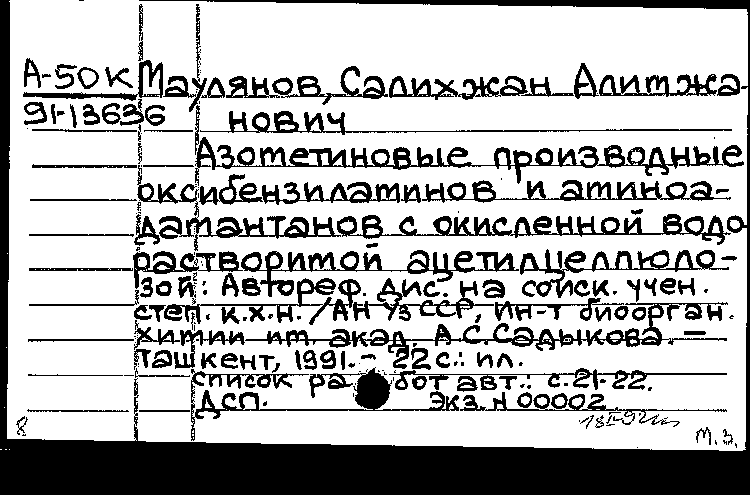 А-50к Маулянов, Салихжан Алимжа-
91-13636 нович
Азометиновые производные
оксибензиламинов и аминоа-
дамантанов с окисленной водо
растворимой ацетилцеллюло-
зой: Автореф. дис. на соиск. учен.
степ. к.х.н. / АН УзССР, Ин-т биоорган.
химии им. акад. А.С.Садыкова. —
Ташкент, 1991. - 22 с.: ил.
Список работ авт.: с.21-22.
ДСП. Экз. N 00002
8 М.З.